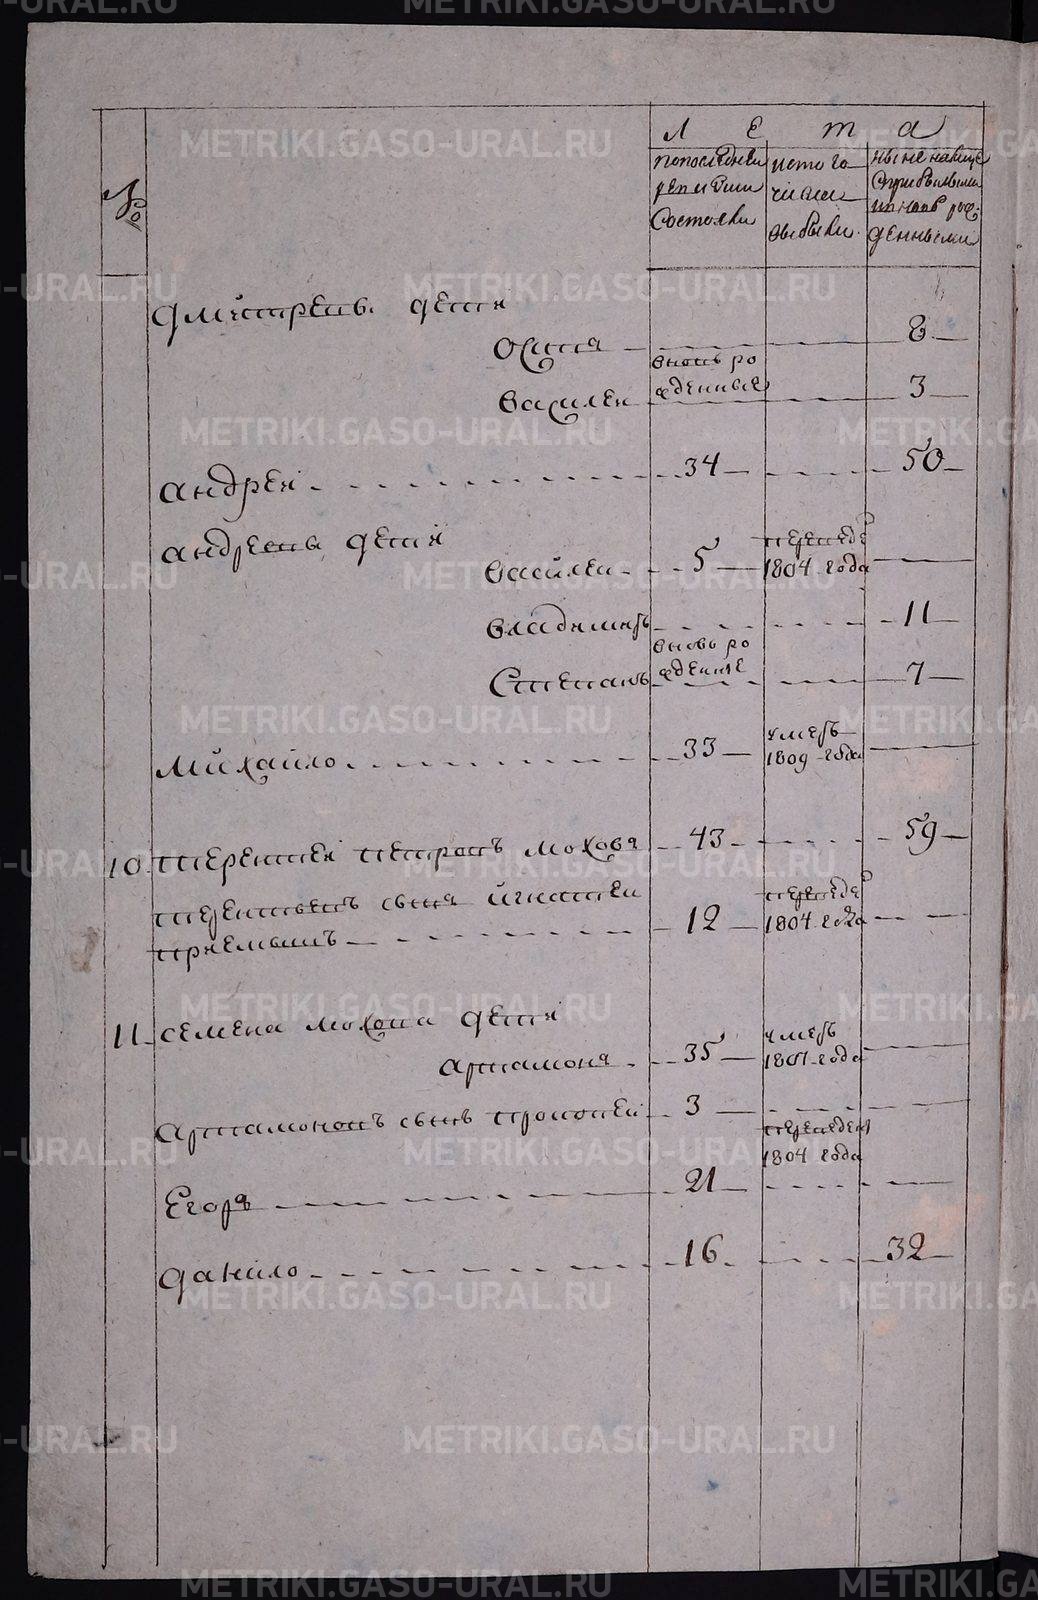 METRIKI.GASO-URAL.RU
№
Лета
по последней ревизии состояли
из того числа выбыли
ныне налице с прибылыми и новорожденными
Дмитревы дети
Осипъ 8
вновь рожденные
Василей 3
Андрей 34 50
Андреевы дети
Василей 5 переведе 1804 года
Владимеръ 11
вновь рожденные
Степанъ 7
Михайло 33 умеръ 1809 года
10. Терентей Петровъ Моховъ 43 59
Терентьевъ сынъ Игнатей
приемышъ 12 переведе 1804 года
11 Семена Мохова дети
Артамонъ 35 умеръ 1801 года
Артамоновъ сынъ Прокопей 3
переведен 1804 года
Егоръ 21
Данило 16 32